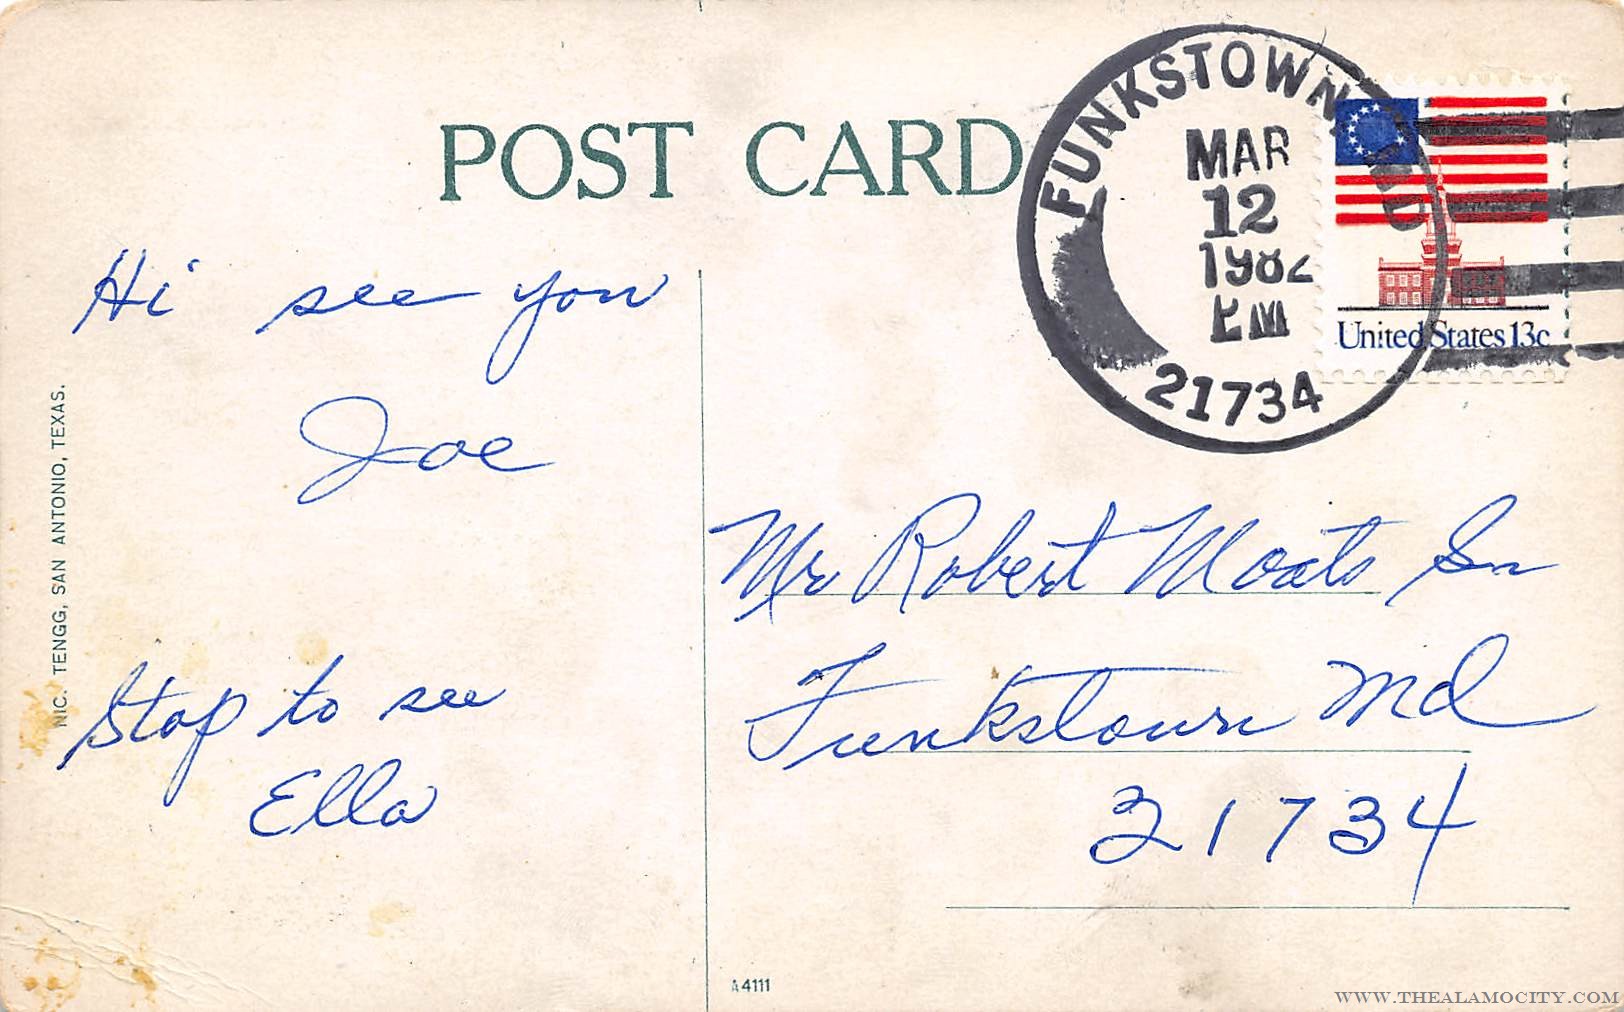 POST CARD
FUNKSTOWN, MD
MAR
12
1982
PM
21734
United States 13c
Hi see you
Joe
Stop to see
Ella
Mr Robert Moats Sr
Funkstown Md
21734
NIC. TENGG, SAN ANTONIO, TEXAS.
A4111
WWW.THEALAMOCITY.COM